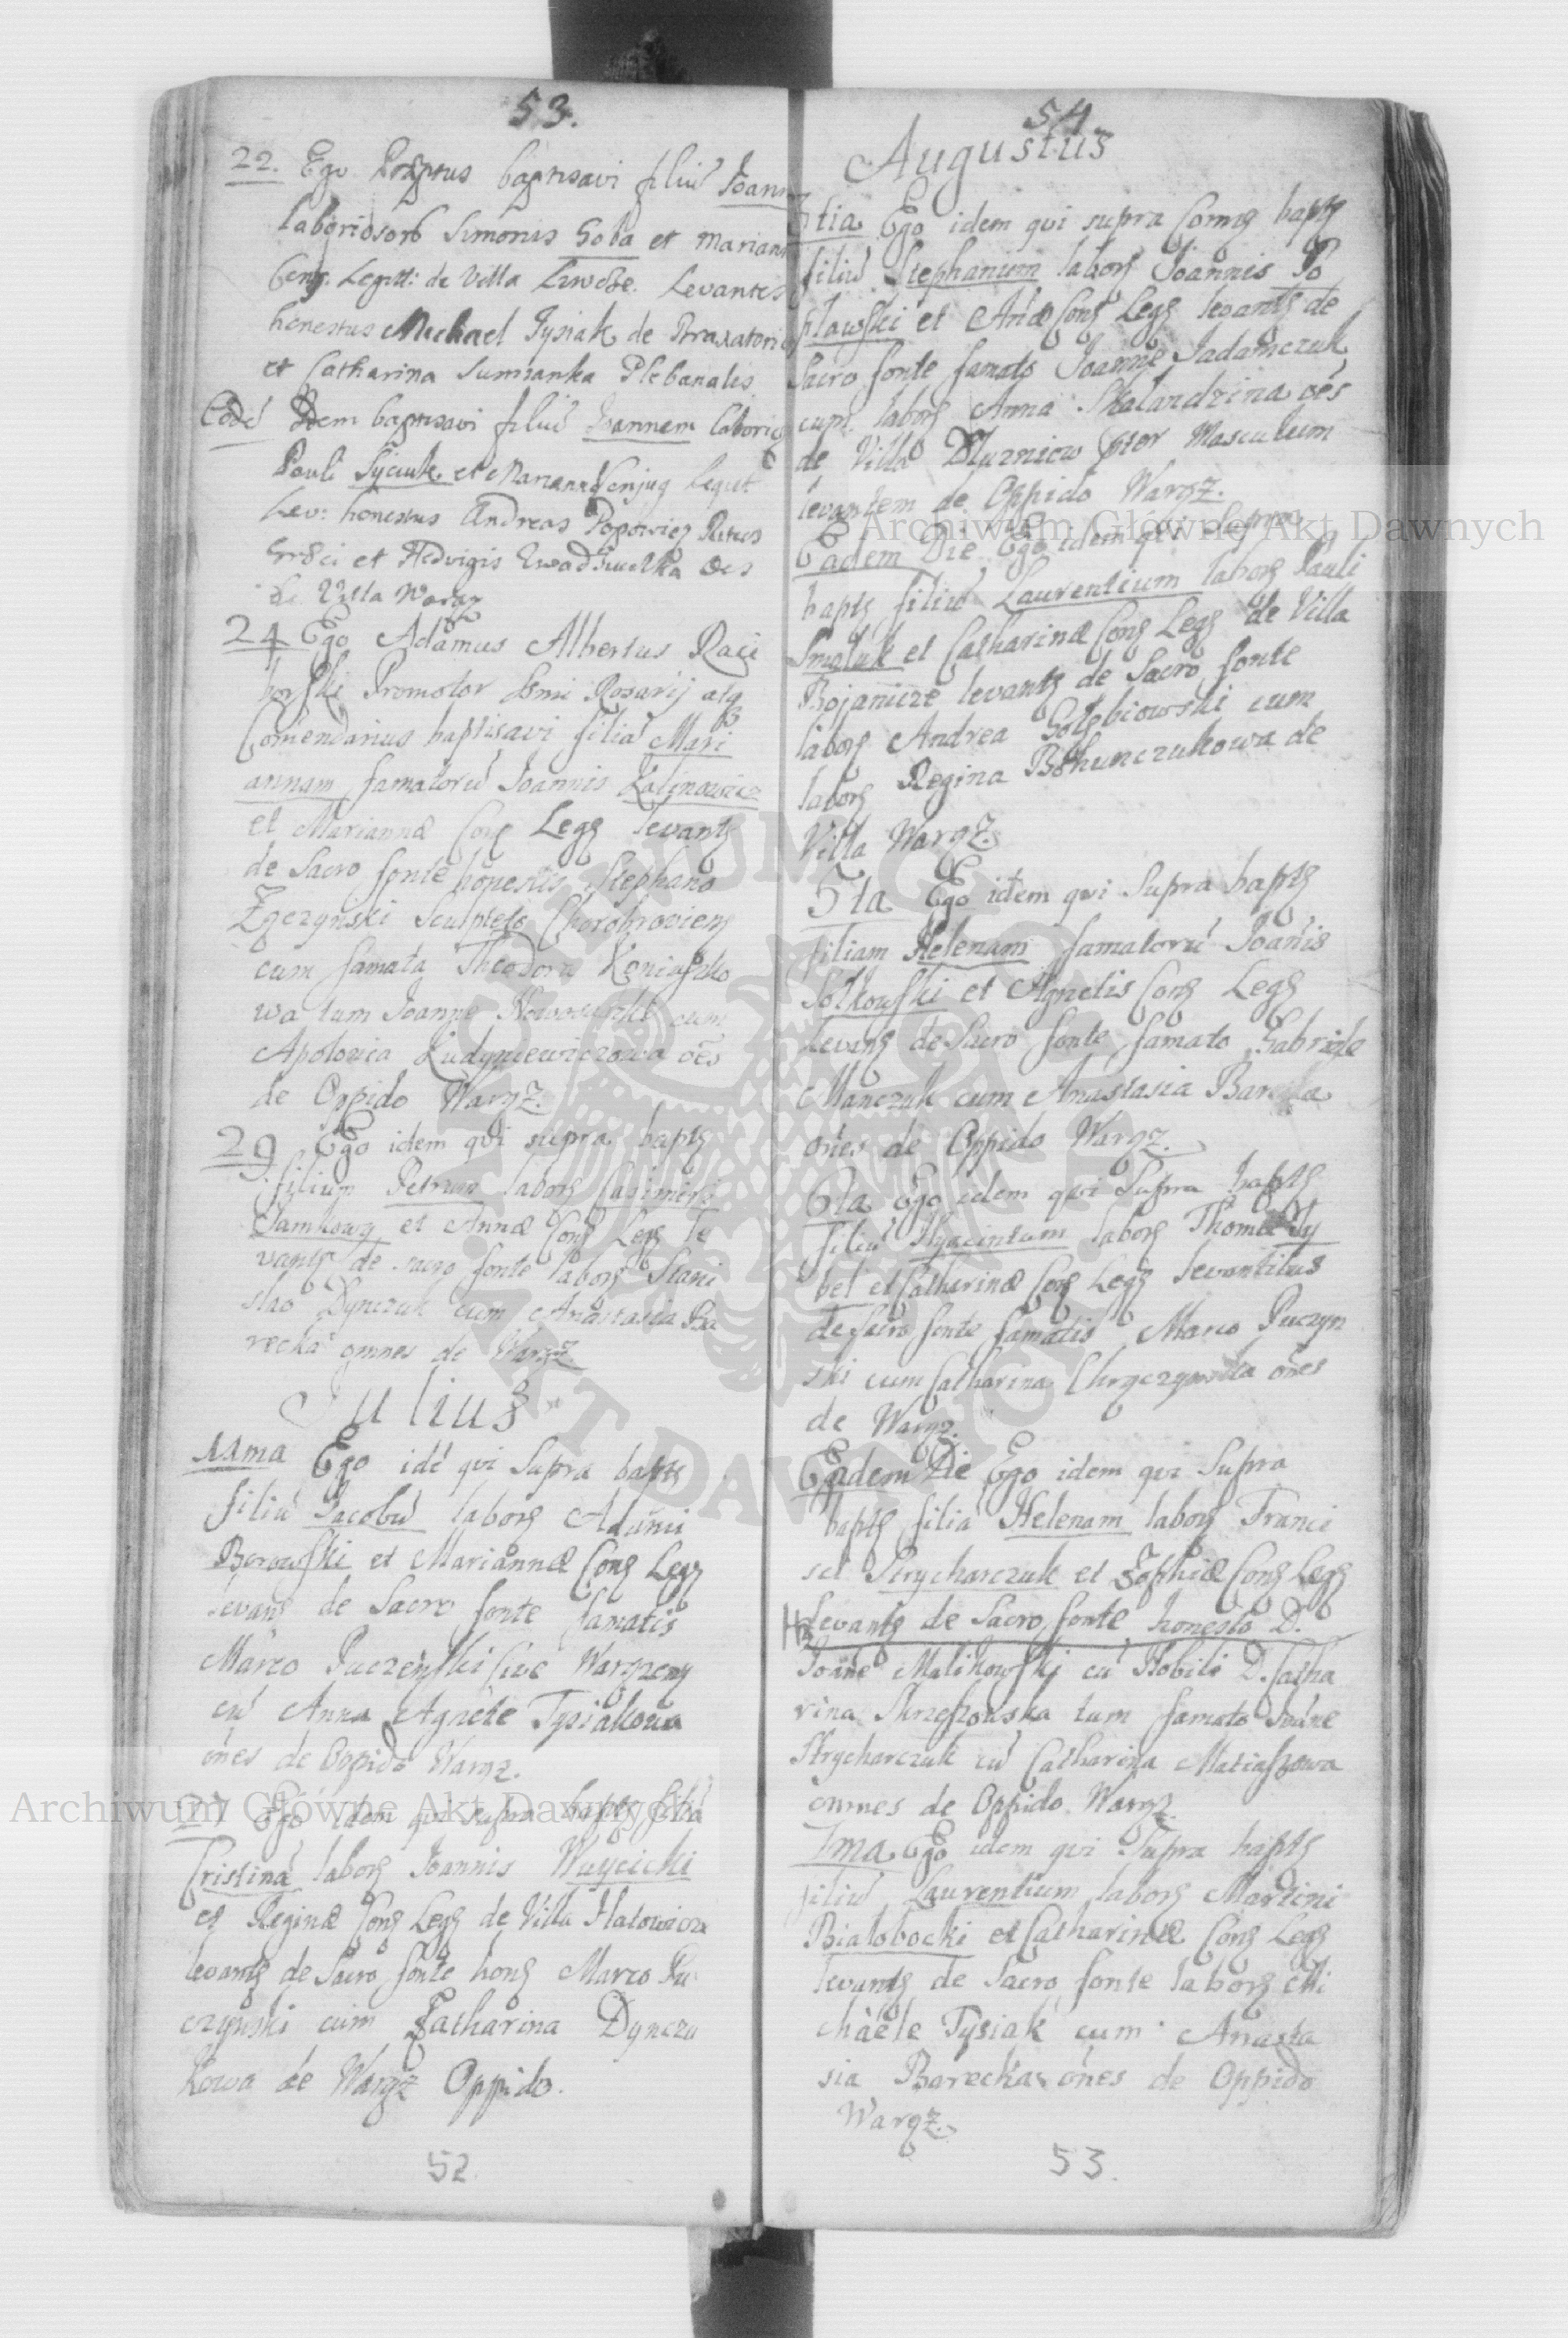 53.
22. Ego Prsptus baptisavi filiu Joann
laboriosorb Simonis Goba et Mariann
Conj. Legitt: de Villa Liwcze. Levantes
honestus Michael Tysiak de Braxatorio
et Catharina Sumianka Plebanalis
Eode Idem baptisavi filiu Joannem laborio
Pauli Syciuk et Marianna Conjug Legitt
Lev: honestus Andreas Popowicz Ritus
Greci et Hedvigis oes
de Villa Warąz
24 Ego Adamus Albertus Raci
borski Promotor SSmi Rosarij atq
Comendarius baptisavi filia Mari
annam famatoru Joannis Kalinowicz
et Mariannæ Conj Legg levantg
de Sacro fonte honestis Stephano
Zgczynski Sculptore Chorobroviens
cum famata Theodora Koniuszko
wa tum Joanne cum
Apolonia Ludyniewiczowa oes
de Oppido Warąz.
29 Ego idem qui supra baptg
filium Petrum laborg Casimiri
Jamkowy et Annæ Cong Legg le
vantg de sacro fonte laborg Stani
slao Dynczuk cum Anastasia Ba
recka omnes de Warąz
Julius
11ma Ego ide qui Supra baptg
filiu Jacobu laborg Adami
Borowski et Mariannæ Cong Legg
levang de Sacro fonte famatis
Marco Puczynski sive Warązeng
cu Anna Agnete Tysiakowa
ones de Oppido Warąz.
27 Ego idem qui supra baptg filia
Cristina laborg Joannis Wuycicki
et Reginæ Cong Legg de Villa Hatowice
levantg de Sacro fonte hong Marco Pu
czynski cum Catharina Dynczu
kowa de Warąz Oppido.
52
54
Augustus
3tia Ego idem qui supra Comg baptg
filiu Stephanum laborg Joannis Po
plawski et Anæ Cong Legg levantg de
Sacro fonte famato Joanne Jadamczuk
cum laborg Anna Skalandzina oes
de Villa Dłuzniow pter Masculum
levantem de Oppido Warąz.
Eadem Die Ego idem qui Supra
baptg filiu Laurentium laborg Pauli
Smoluk et Catharinæ Cong Legg de Villa
Bojanicze levantg de Sacro fonte
laborg Andrea Gołębiowski cum
laborg Regina Bohunczukowa de
Villa Warąz.
5ta Ego idem qui Supra baptg
filiam Helenam famatoru Joanis
Solkowski et Agnetis Cong Legg
levang de Sacro fonte famato Gabriele
Manczuk cum Anastasia Barecka
ones de Oppido Warąz.
6ta Ego idem qui Supra baptg
filiu Hyacintum laborg Thomæ Cy
bel et Catharinæ Cong Legg levantibus
de Sacro fonte famatis Marco Puczyn
ski cum Catharina Chryczynska ones
de Warąz.
Eadem Die Ego idem qui Supra
baptg filia Helenam laborg Franci
sci Strycharczuk et Zophiæ Cong Legg
levantg de Sacro fonte honesto D.
Joane Malikowski cu Nobili D. Catha
rina Skrzeszowska tum famato Joane
Strycharczuk cu Catharina Matiaszowa
omnes de Oppido Warąz.
7ma Ego idem qui Supra baptg
filiu Laurentium laborg Martini
Białobocki et Catharinæ Cong Legg
levantg de Sacro fonte laborg Mi
chaele Tysiak cum Anasta
sia Barecka ones de Oppido
Warąz.
53.
Archiwum Główne Akt Dawnych
Archiwum Główne Akt Dawnych
ARCHIWUM GŁÓWNE AKT DAWNYCH